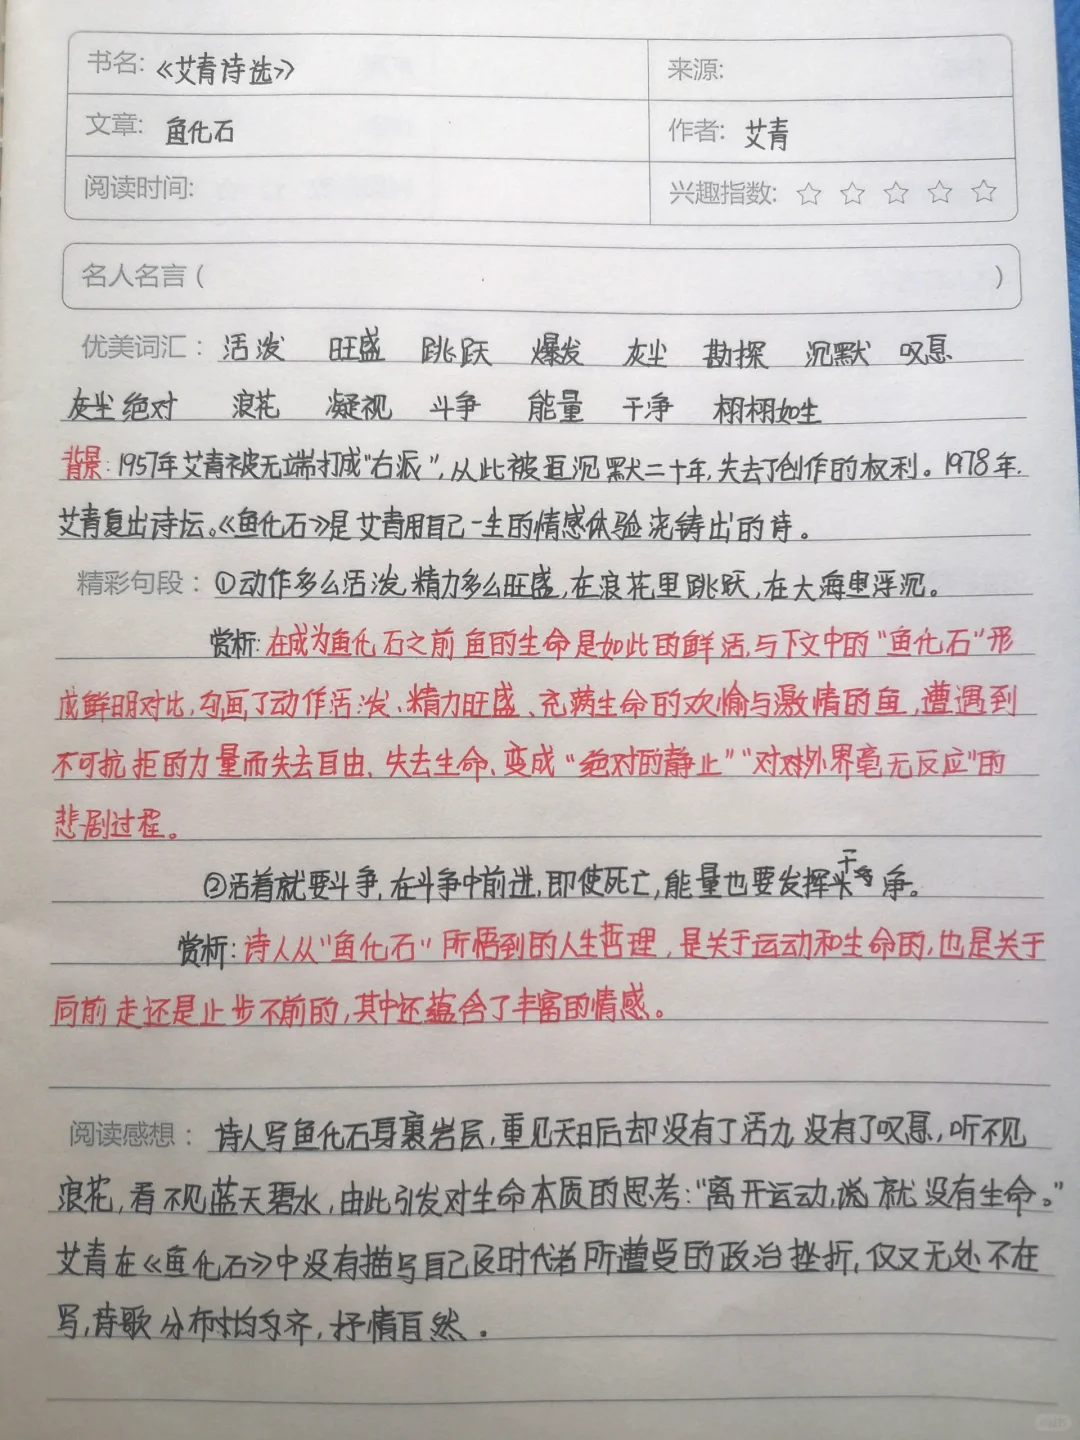 书名: 《艾青诗选》 来源:
文章: 鱼化石 作者: 艾青
阅读时间: 兴趣指数: ☆ ☆ ☆ ☆ ☆
名人名言 ( )
优美词汇: 活泼 旺盛 跳跃 爆发 灰尘 勘探 沉默 叹息
灰尘 绝对 浪花 凝视 斗争 能量 干净 栩栩如生
背景: 1957年艾青被无端打成“右派”, 从此被迫沉默二十年, 失去了创作的权利。1978年.
艾青复出诗坛。《鱼化石》是艾青用自己一生的情感体验浇铸出的诗。
精彩句段: ①动作多么活泼, 精力多么旺盛, 在浪花里跳跃, 在大海里浮沉。
赏析: 在成为鱼化石之前鱼的生命是如此的鲜活, 与下文中的“鱼化石”形
成鲜明对比, 勾画了动作活泼、精力旺盛、充满生命的欢愉与激情的鱼, 遭遇到
不可抗拒的力量而失去自由、失去生命、变成“绝对的静止”“对外界毫无反应”的
悲剧过程。
②活着就要斗争, 在斗争中前进, 即使死亡, 能量也要发挥干净。
赏析: 诗人从“鱼化石”所悟到的人生哲理, 是关于运动和生命的, 也是关于
向前走还是止步不前的, 其中还蕴含了丰富的情感。
阅读感想: 诗人写鱼化石身裹岩层, 重见天日后却没有了活力, 没有了叹息, 听不见
浪花, 看不见蓝天碧水, 由此引发对生命本质的思考: “离开运动, 就没有生命。”
艾青在《鱼化石》中没有描写自己及时代者所遭受的政治挫折, 仅又无处不在
写, 诗歌分布均匀齐, 抒情自然。